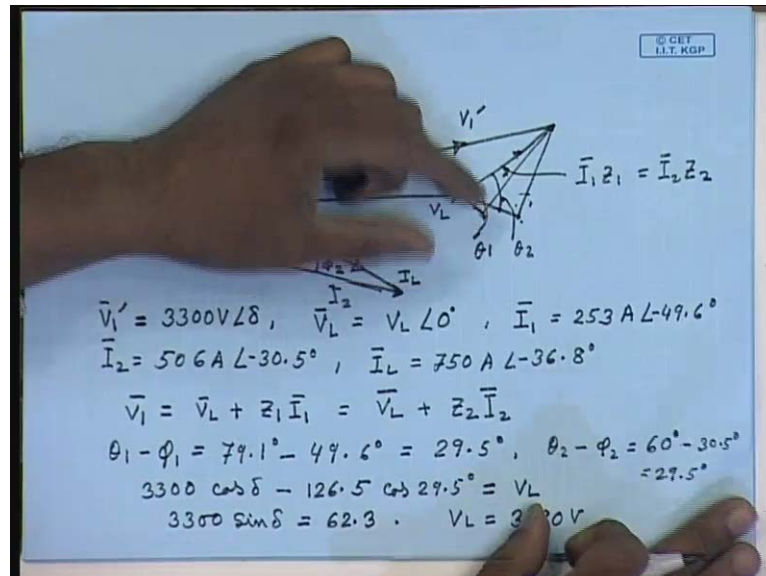 © CET
I.I.T. KGP
V₁′
Ī₁ Z₁ = Ī₂ Z₂
V_L
θ1 θ2
φ₂
I_L
I₂
V̄₁′ = 3300V∠δ, V̄_L = V_L ∠0°, Ī₁ = 253 A ∠-49.6°
Ī₂ = 506A ∠-30.5°, Ī_L = 750 A ∠-36.8°
V̄₁ = V̄_L + Z₁Ī₁ = V̄_L + Z₂Ī₂
θ₁ - φ₁ = 79.1° - 49.6° = 29.5°, θ₂ - φ₂ = 60° - 30.5°
= 29.5°
3300 cos δ - 126.5 cos 29.5° = V_L
3300 sin δ = 62.3. V_L =